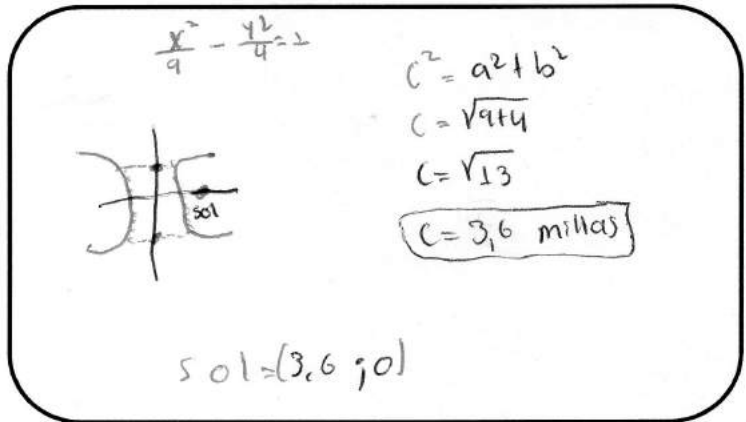 x²/9 - y²/4 = 1
c² = a² + b²
c = √9+4
c = √13
c = 3,6 millas
sol
sol = (3,6 ; 0)